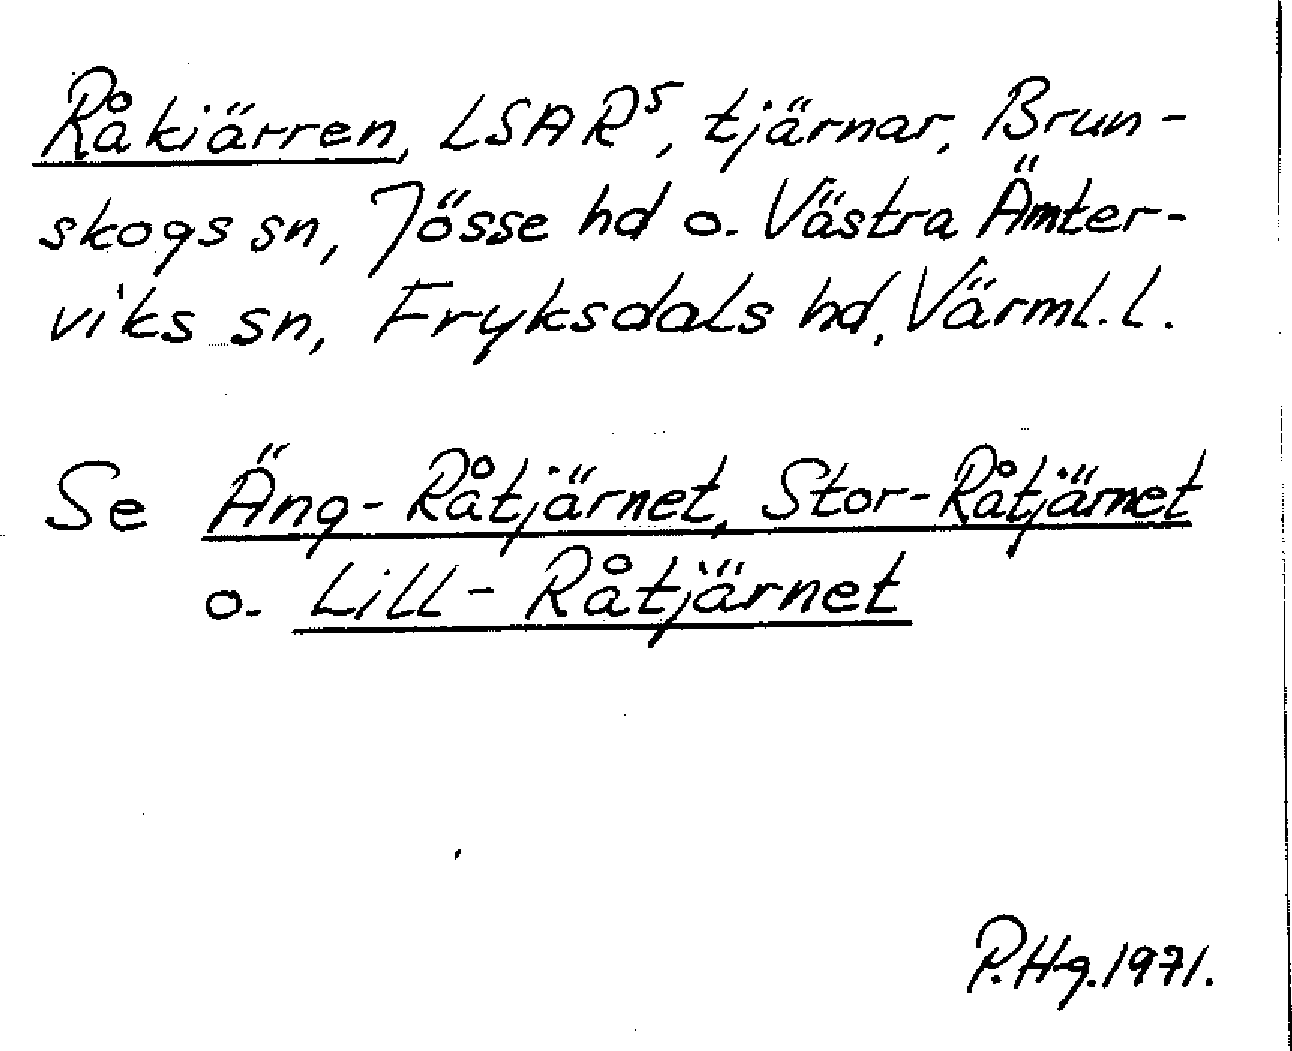 Råkiärren, LSA R⁵, tjärnar, Brun-
skogs sn, Jösse hd o. Västra Ämter-
viks sn, Fryksdals hd, Värml. l.
Se Äng-Råtjärnet, Stor-Råtjärnet
o. Lill-Råtjärnet
P.Hg. 1971.